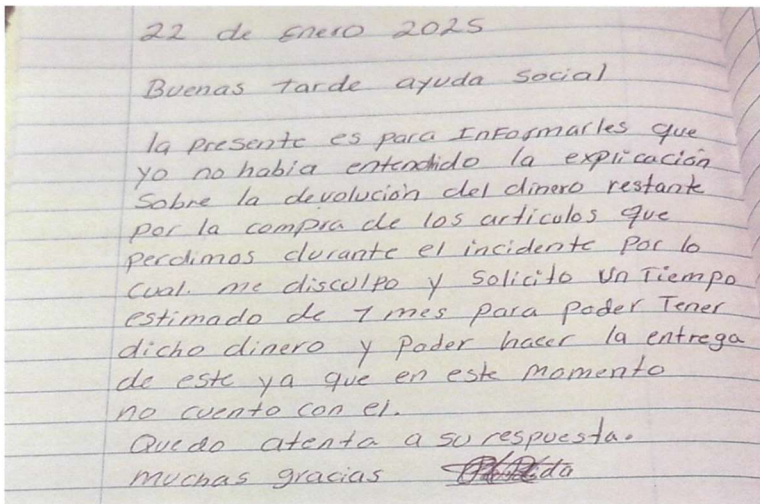 22 de Enero 2025
Buenas tarde ayuda social
la presente es para Informarles que
yo no habia entendido la explicación
Sobre la devolución del dinero restante
por la compra de los articulos que
perdimos durante el incidente por lo
cual. me disculpo y solicito un Tiempo
estimado de 1 mes para poder Tener
dicho dinero y poder hacer la entrega
de este ya que en este momento
no cuento con el.
Quedo atenta a su respuesta.
muchas gracias